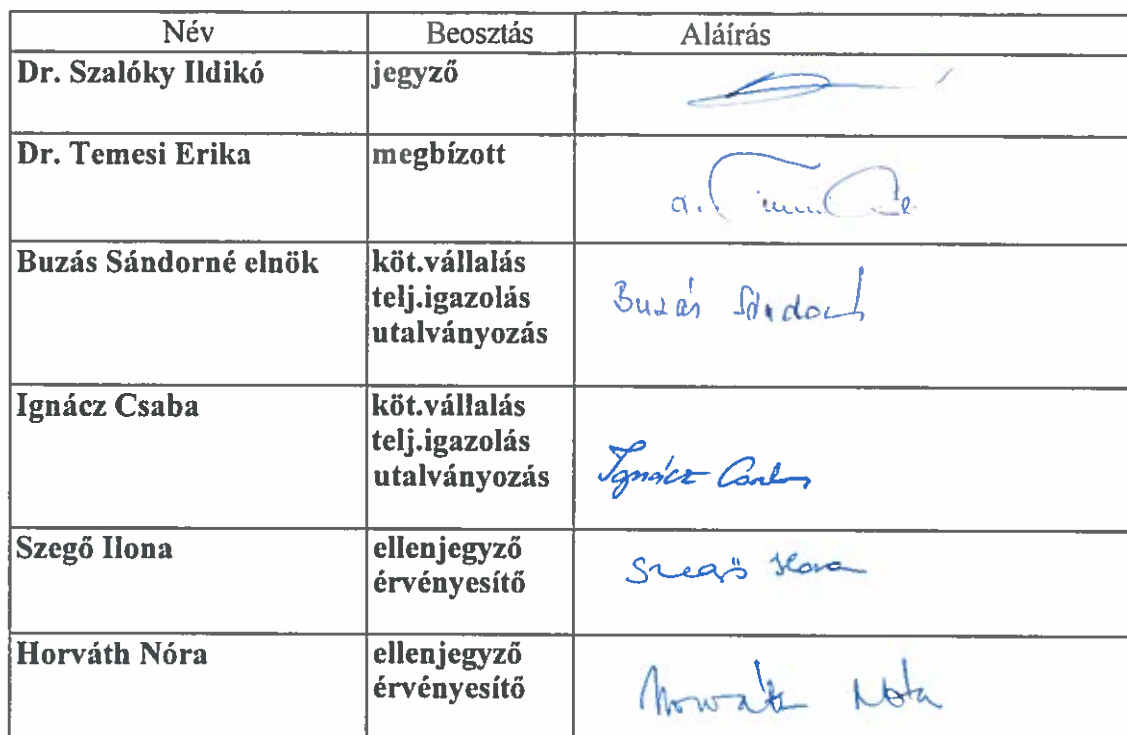 Név Beosztás Aláírás
Dr. Szalóky Ildikó jegyző
Dr. Temesi Erika megbízott
Buzás Sándorné elnök köt.vállalás
telj.igazolás
utalványozás
Buzás Sándorné
Ignácz Csaba köt.vállalás
telj.igazolás
utalványozás
Ignácz Csaba
Szegő Ilona ellenjegyző
érvényesítő
Szegő Ilona
Horváth Nóra ellenjegyző
érvényesítő
Horváth Nóra